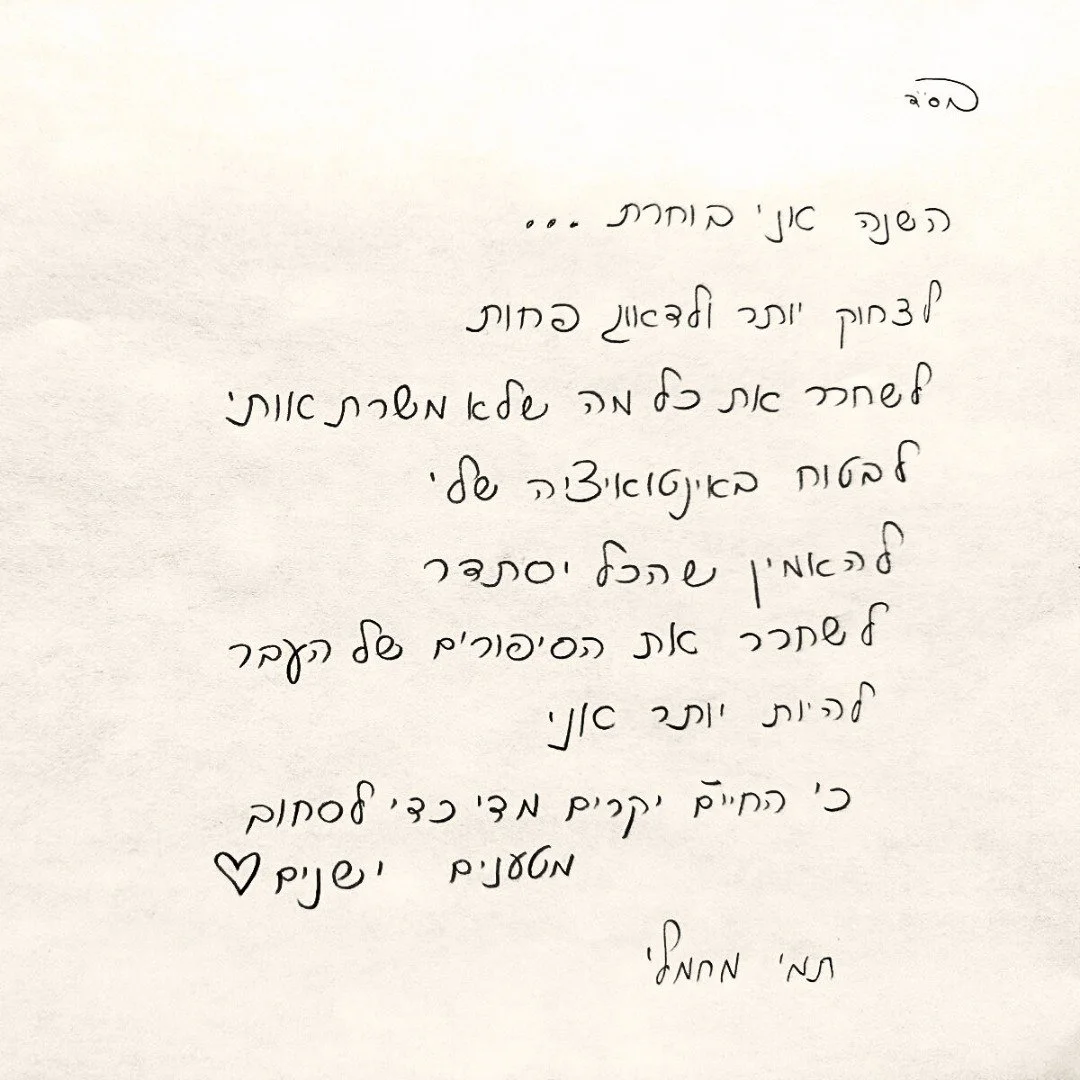 בס"ד
השנה אני בוחרת ...
לצחוק יותר ולדאוג פחות
לשחרר את כל מה שלא משרת אותי
לבטוח באינטואיציה שלי
להאמין שהכל יסתדר
לשחרר את הסיפורים של העבר
להיות יותר אני
כי החיים יקרים מדי כדי לסחוב
מטענים ישנים♡
תמי מחמלי